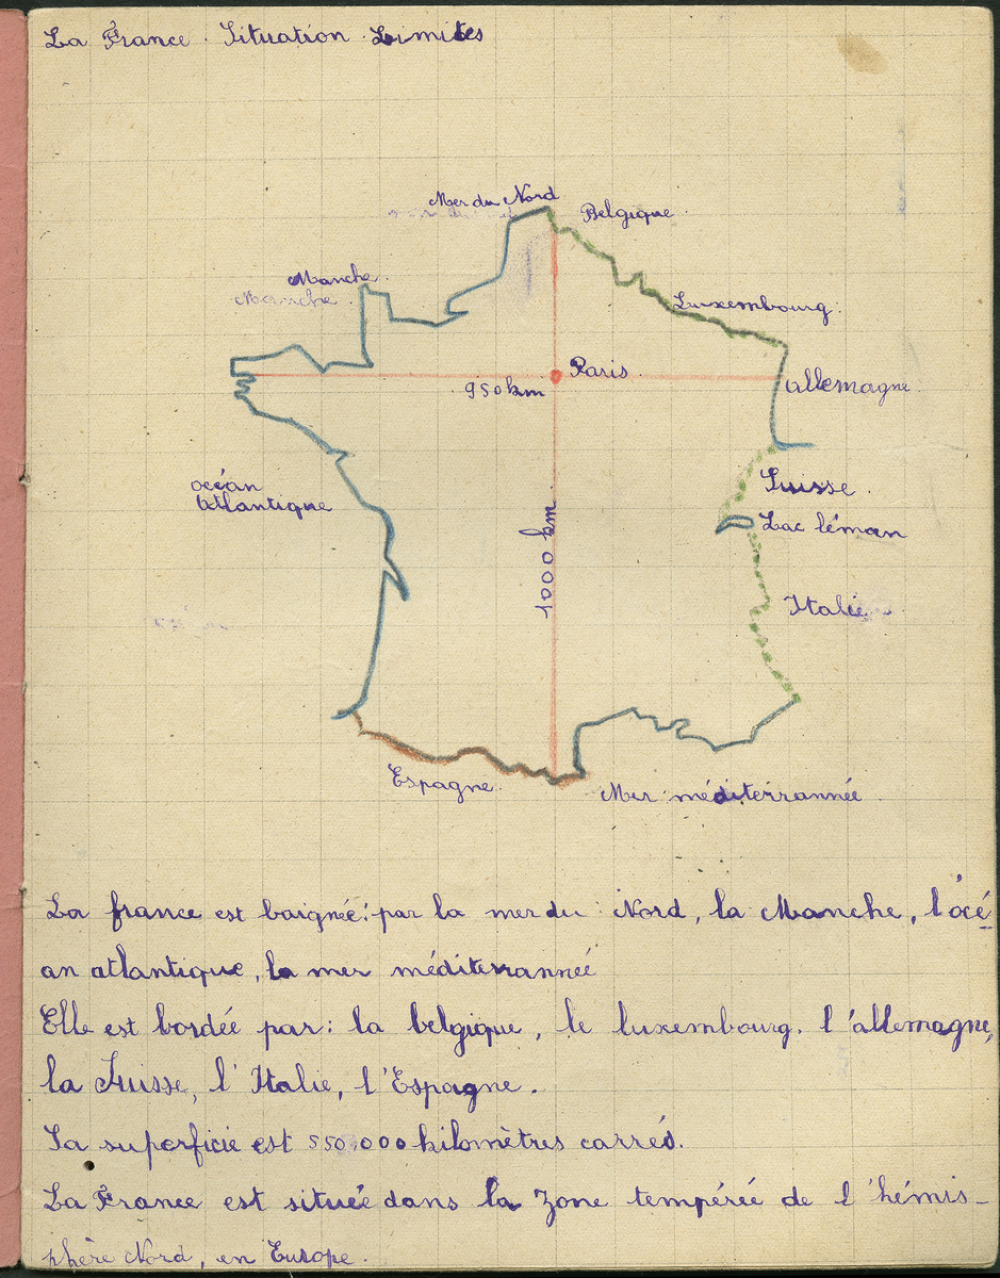 La France. Situation. Limites
Mer du Nord
Belgique
Manche
Manche
Luxembourg.
Paris
950 km
allemagne
océan
atlantique
Suisse.
Lac léman
1000 km.
Italie
Espagne.
Mer méditerrannée
La france est baignée: par la mer du Nord, la Manche, l'océ
an atlantique, la mer méditerrannéé
Elle est bordée par: la belgique, le luxembourg. l'allemagne,
la Suisse, l'Italie, l'Espagne.
Sa superficie est 550.000 kilomètres carrés.
La France est située dans la zone tempéréé de l'hémis-
phère Nord, en Europe.